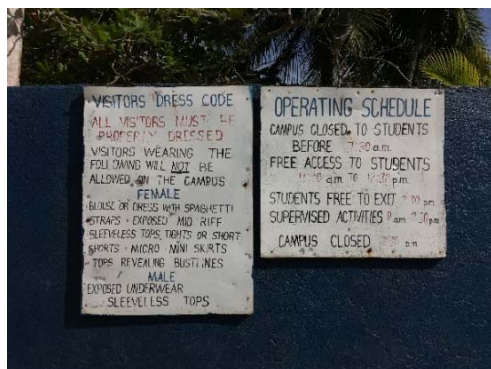 VISITORS DRESS CODE
ALL VISITORS MUST BE
PROPERLY DRESSED
VISITORS WEARING THE
FOLLOWING WILL NOT BE
ALLOWED ON THE CAMPUS
FEMALE
BLOUSE OR DRESS WITH SPAGHETTI
STRAPS - EXPOSED MID RIFF
SLEEVELESS TOPS, TIGHTS OR SHORT
SHORTS - MICRO - MINI SKIRTS
TOPS REVEALING BUSTLINES
MALE
EXPOSED UNDERWEAR
SLEEVELESS TOPS
OPERATING SCHEDULE
CAMPUS CLOSED TO STUDENTS
BEFORE a.m.
FREE ACCESS TO STUDENTS
a.m TO p.m.
STUDENTS FREE TO EXIT p.m.
SUPERVISED ACTIVITIES
CAMPUS CLOSED